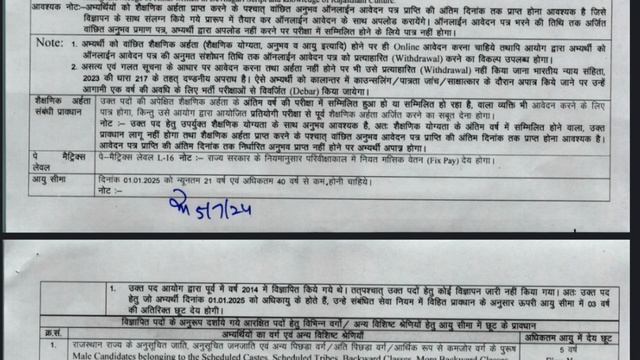 आवश्यक नोटः–अभ्यर्थियों को शैक्षणिक अर्हता प्राप्त करने के पश्चात् वांछित अनुभव ऑनलाईन आवेदन पत्र प्राप्ति की अंतिम दिनांक तक प्राप्त होना आवश्यक है जिसे
विज्ञापन के साथ संलग्न किये गये प्रारूप में तैयार कर ऑनलाईन आवेदन के साथ अपलोड करायेंगे। ऑनलाईन आवेदन पत्र भरने की तिथि तक अर्जित
वांछित अनुभव प्रमाण पत्र, अभ्यर्थी द्वारा अपलोड नहीं करने पर परीक्षा में सम्मिलित होने के लिये पात्र नहीं होगा।
Note: 1. अभ्यर्थी को वांछित शैक्षणिक अर्हता (शैक्षणिक योग्यता, अनुभव व आयु इत्यादि) होने पर ही Online आवेदन करना चाहिये तथापि आयोग द्वारा अभ्यर्थी को
ऑनलाईन आवेदन पत्र की अनुमत संशोधन तिथि तक ऑनलाईन आवेदन पत्र को प्रत्याहारित (Withdrawal) करने का विकल्प उपलब्ध होगा।
2. असत्य एवं गलत सूचना के आधार पर आवेदन करना तथा अर्हता नहीं होने पर भी उसे प्रत्याहारित (Withdrawal) नहीं किया जाना भारतीय न्याय संहिता,
2023 की धारा 217 के तहत् दण्डनीय अपराध है। ऐसे अभ्यर्थी को कालान्तर में काउन्सलिंग/पात्रता जांच/साक्षात्कार के दौरान अपात्र किये जाने पर उन्हें
आगामी एक वर्ष की अवधि के लिए भर्ती परीक्षाओं से विवर्जित (Debar) किया जायेगा।
शैक्षणिक अर्हता संबंधी प्रावधान उक्त पदों की अपेक्षित शैक्षणिक अर्हता के अंतिम वर्ष की परीक्षा में सम्मिलित हुआ हो या सम्मिलित हो रहा है, वाला व्यक्ति भी आवेदन करने के लिए
पात्र होगा, किन्तु उसे आयोग द्वारा आयोजित प्रतियोगी परीक्षा से पूर्व शैक्षणिक अर्हता अर्जित करने का सबूत देना होगा।
नोट :– उक्त पद हेतु उपर्युक्त शैक्षणिक योग्यता के साथ अनुभव आवश्यक है, अतः शैक्षणिक योग्यता के अंतिम वर्ष में सम्मिलित होने वाला, उक्त
प्रावधान लागू नहीं होगा तथा शैक्षणिक अर्हता प्राप्त करने के पश्चात् वांछित अनुभव आवेदन पत्र प्राप्ति की अंतिम दिनांक तक प्राप्त होना आवश्यक है।
आवेदन पत्र प्राप्ति की अंतिम दिनांक तक निर्धारित अनुभव प्राप्त नहीं होने पर अभ्यर्थी अपात्र होगा।
पे मैट्रिक्स लेवल पे–मैट्रिक्स लेवल L-16 नोट :– राज्य सरकार के नियमानुसार परिवीक्षाकाल में नियत मासिक वेतन (Fix Pay) देय होगा।
आयु सीमा दिनांक 01.01.2025 को न्यूनतम 21 वर्ष एवं अधिकतम 40 वर्ष से कम,होनी चाहिये।
नोट :–
5/7/24
1. उक्त पद आयोग द्वारा पूर्व में वर्ष 2014 में विज्ञापित किये गये थे। तत्पश्चात् उक्त पदों हेतु कोई विज्ञापन जारी नहीं किया गया। अतः उक्त पद
हेतु जो अभ्यर्थी दिनांक 01.01.2025 को अधिकायु के होते हैं, उन्हे संबंधित सेवा नियम में विहित प्रावधान के अनुसार ऊपरी आयु सीमा में 03 वर्ष
की अतिरिक्त छूट देय होगी।
विज्ञापित पदों के अनुरूप दर्शाये गये आरक्षित पदों हेतु विभिन्न वर्ग/ अन्य विशिष्ट श्रेणियों हेतु आयु सीमा में छूट के प्रावधान
क्र.सं. अभ्यर्थियों का वर्ग एवं अन्य विशिष्ट श्रेणियां अधिकतम आयु में देय छूट
1. राजस्थान राज्य के अनुसूचित जाति, अनुसूचित जनजाति एवं अन्य पिछड़ा वर्ग/अति पिछड़ा वर्ग/आर्थिक रूप से कमजोर वर्ग के पुरूष 5 वर्ष
Male Candidates belonging to the Scheduled Castes, Scheduled Tribes, Backward Classes, More Backward Classes